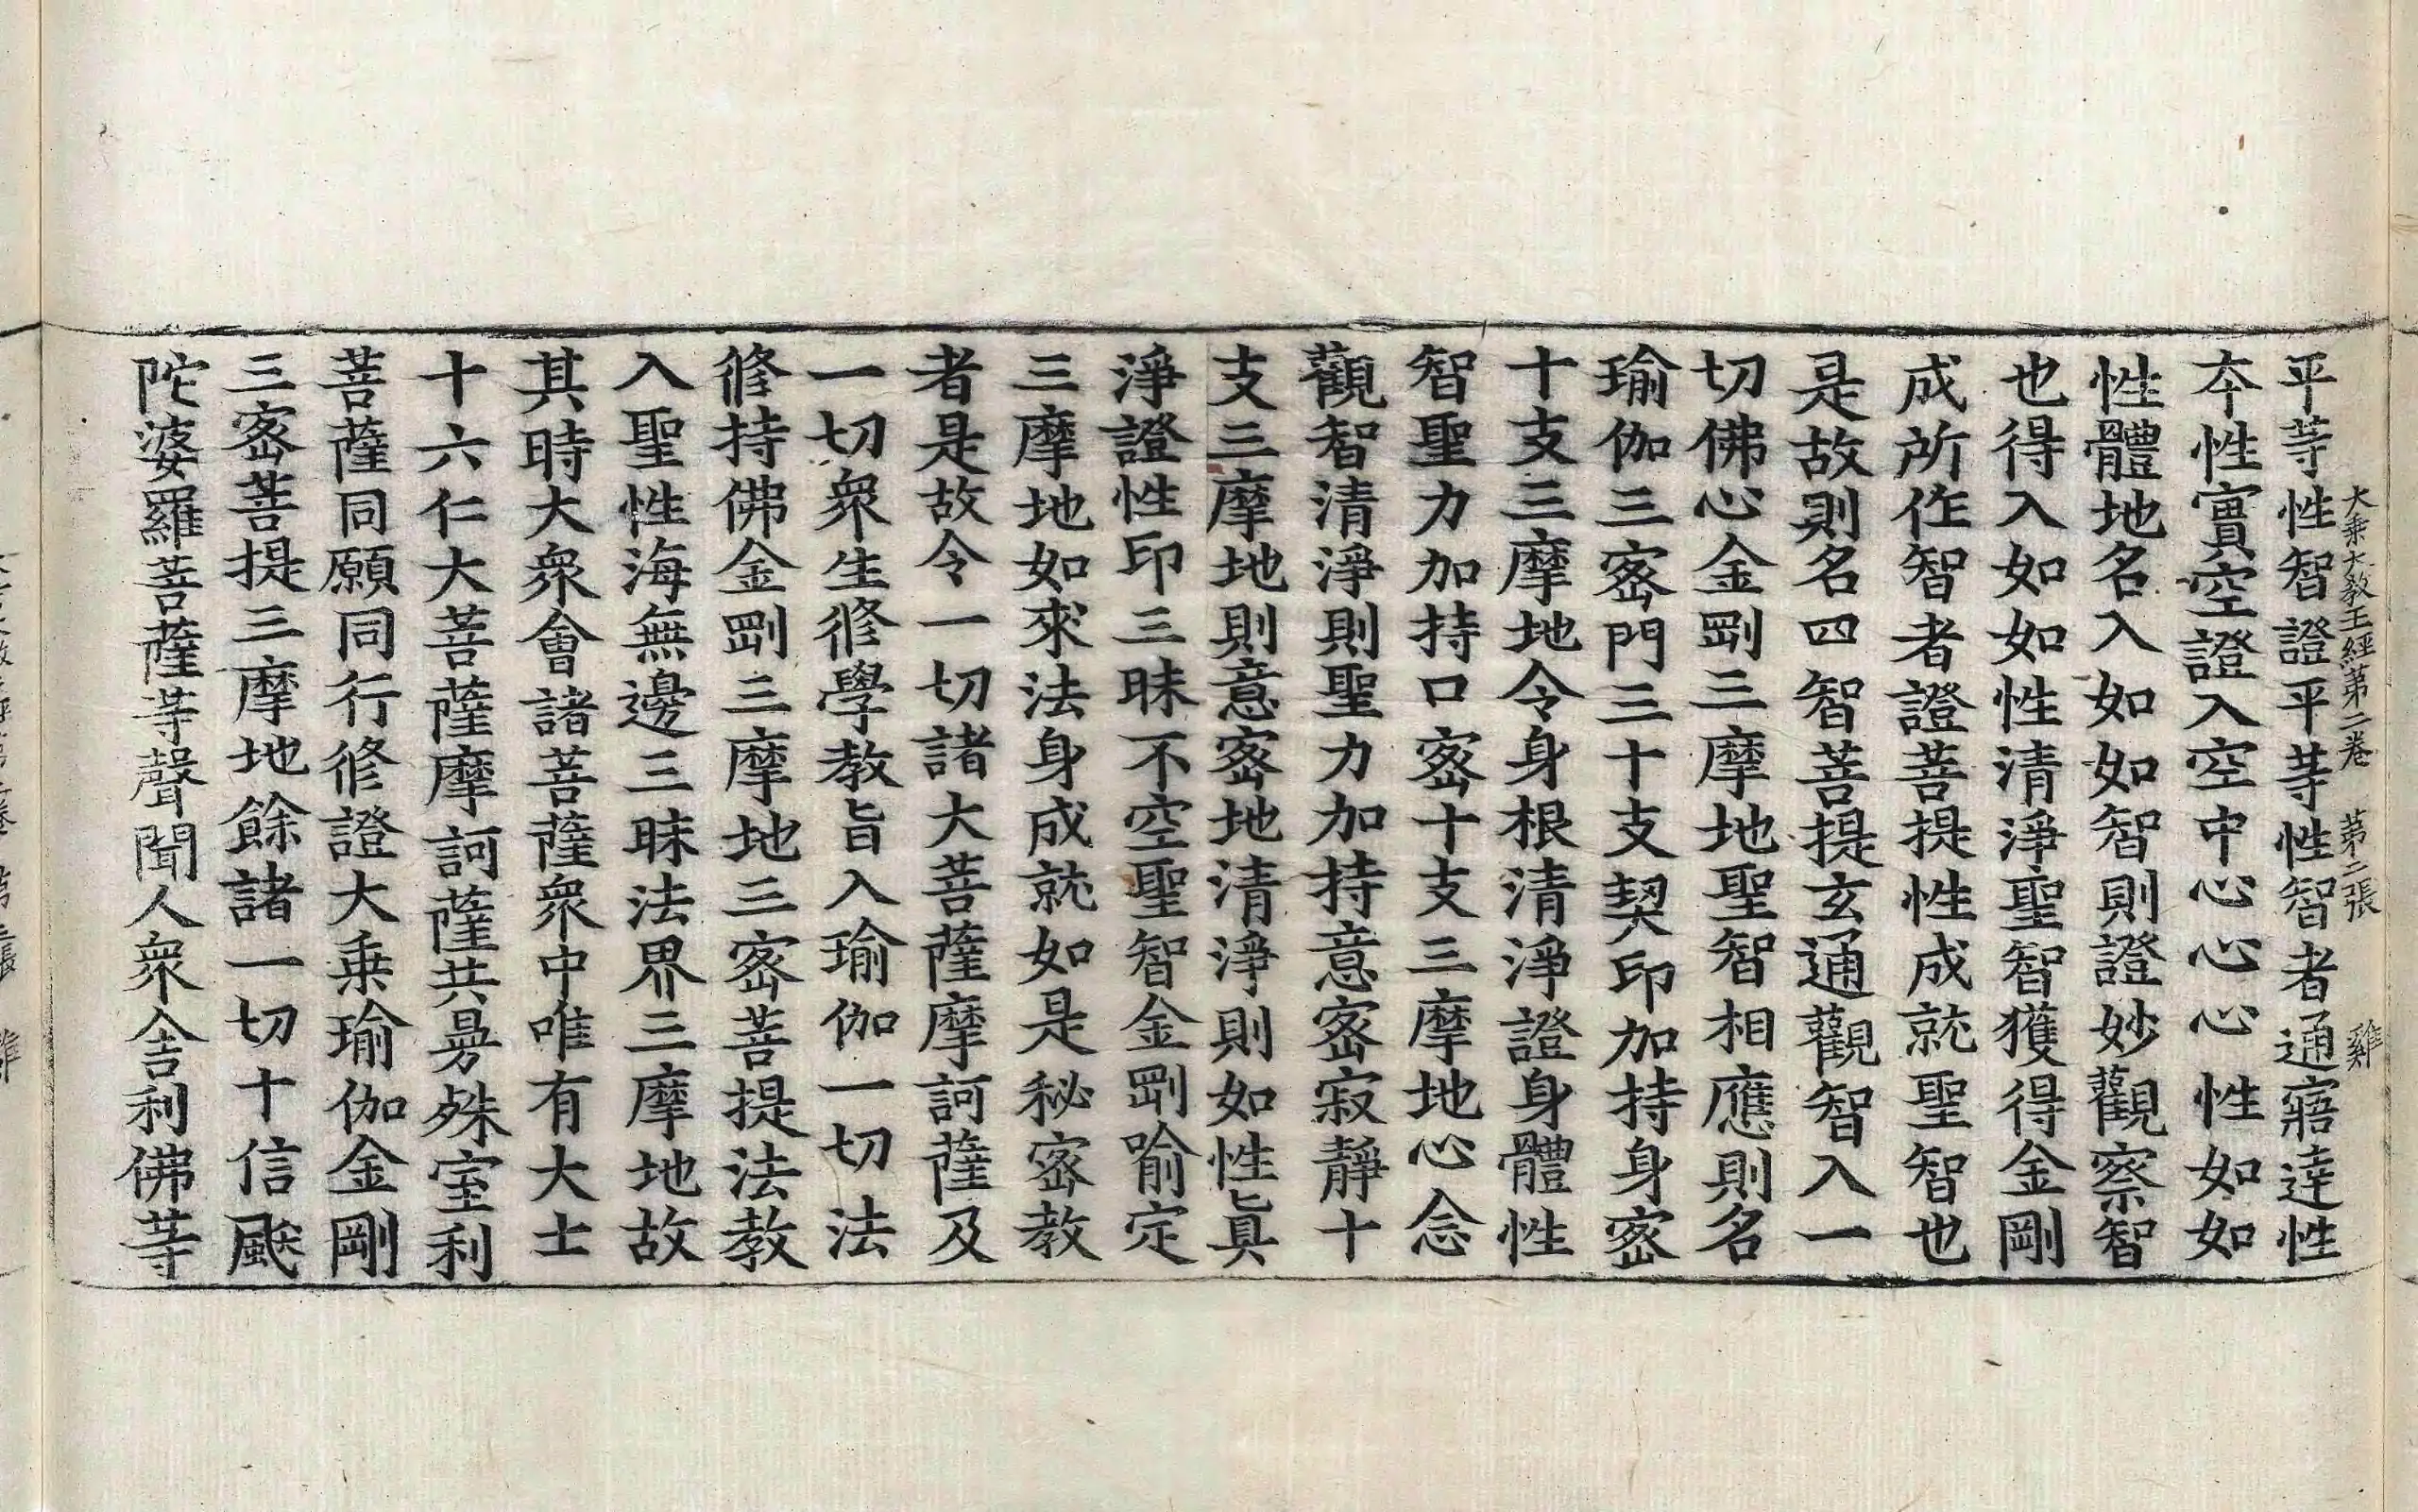 大乘大教王經第二卷 第二張 雞
平等性智證平等性智者通寤達性
本性實空證入空中心心心性如如
性體地名入如如智則證妙觀察智
也得入如如性清淨聖智獲得金剛
成所作智者證菩提性成就聖智也
是故則名四智菩提玄通觀智入一
切佛心金剛三摩地聖智相應則名
瑜伽三密門三十支契印加持身密
十支三摩地令身根清淨證身體性
智聖力加持口密十支三摩地心念
觀智清淨則聖力加持意密寂靜十
支三摩地則意密地清淨則如性真
淨證性印三昧不空聖智金剛喻定
三摩地如來法身成就如是秘密教
者是故令一切諸大菩薩摩訶薩及
一切眾生修學教旨入瑜伽一切法
修持佛金剛三摩地三密菩提法教
入聖性海無邊三昧法界三摩地故
其時大眾會諸菩薩眾中唯有大士
十六仁大菩薩摩訶薩共曼殊室利
菩薩同願同行修證大乘瑜伽金剛
三密菩提三摩地餘諸一切十信
陀婆羅菩薩等聲聞人眾舍利佛等